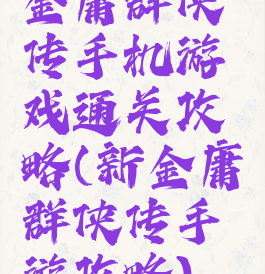 金庸群侠
传手机游
戏通关攻
略(新金庸
群侠传手
游攻略)